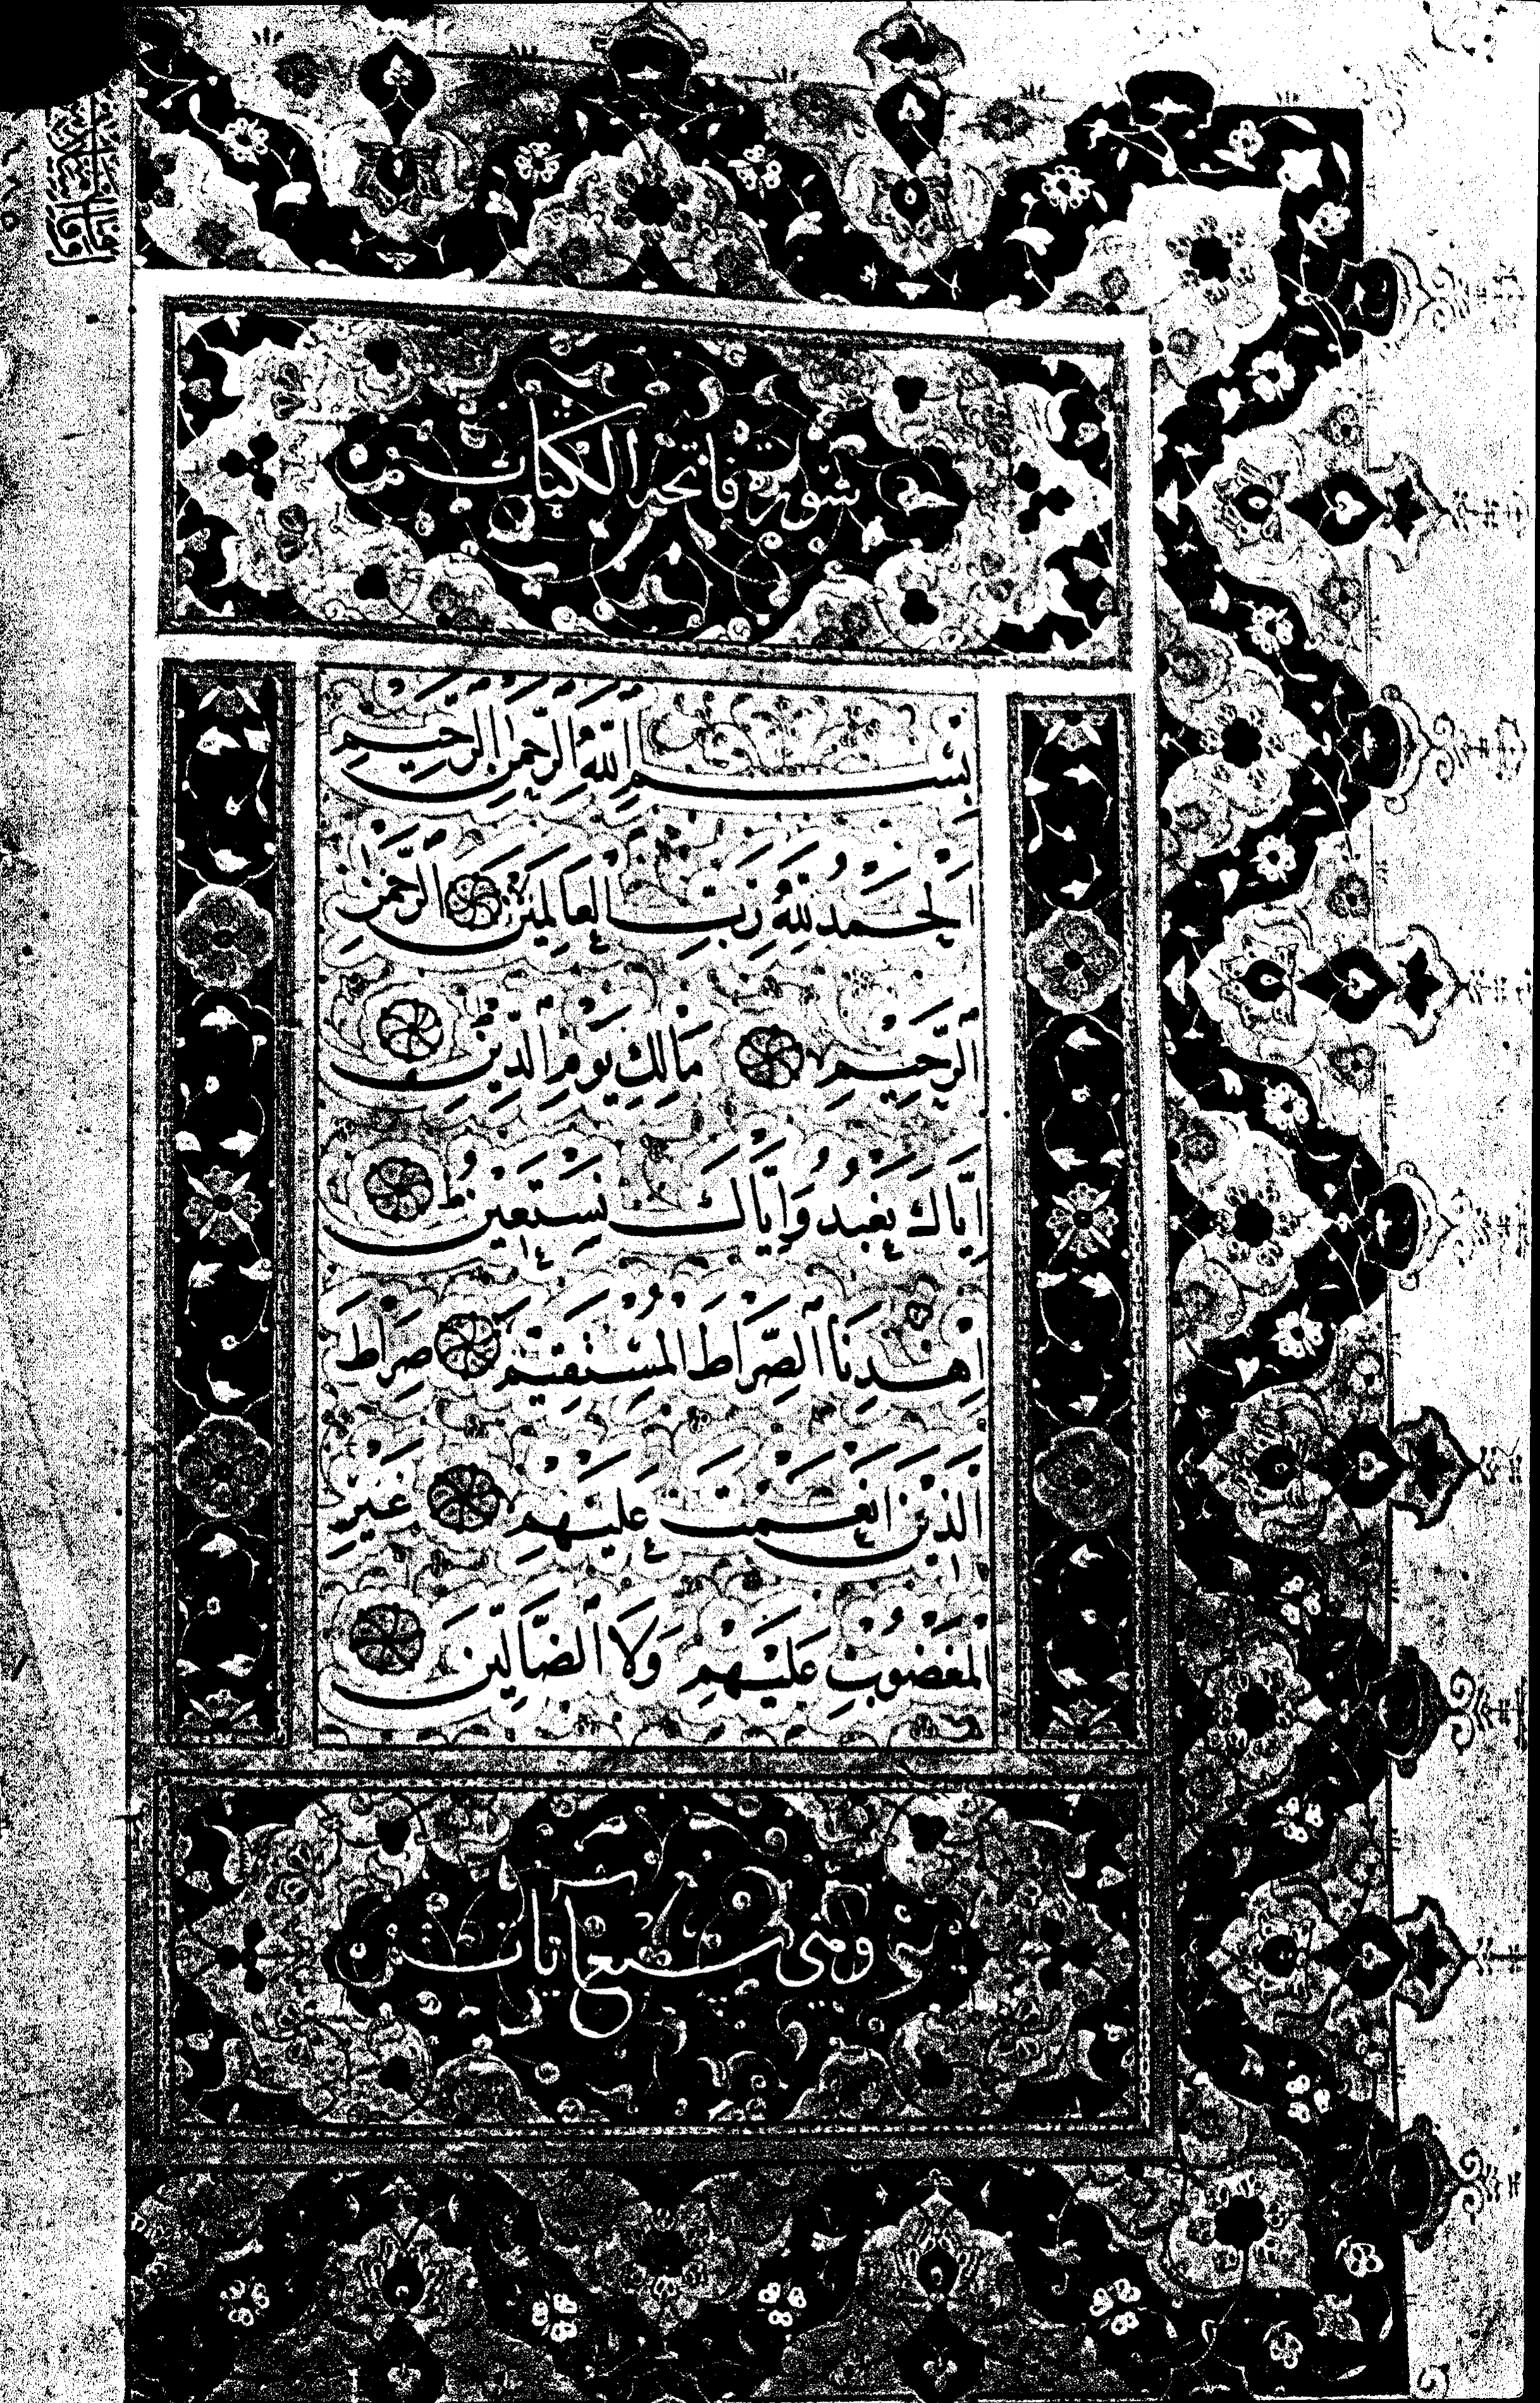 سورة فاتحة الكتاب
بِسْمِ اللّٰهِ الرَّحْمٰنِ الرَّحِيمِ
اَلْحَمْدُ لِلّٰهِ رَبِّ الْعَالَمِينَ الرَّحْمٰنِ
الرَّحِيمِ مَالِكِ يَوْمِ الدِّينِ
اِيَّاكَ نَعْبُدُ وَاِيَّاكَ نَسْتَعِينُ
اِهْدِنَا الصِّرَاطَ الْمُسْتَقِيمَ صِرَاطَ
الَّذِينَ اَنْعَمْتَ عَلَيْهِمْ غَيْرِ
الْمَغْضُوبِ عَلَيْهِمْ وَلَا الضَّالِّينَ
وهي سبع ايات